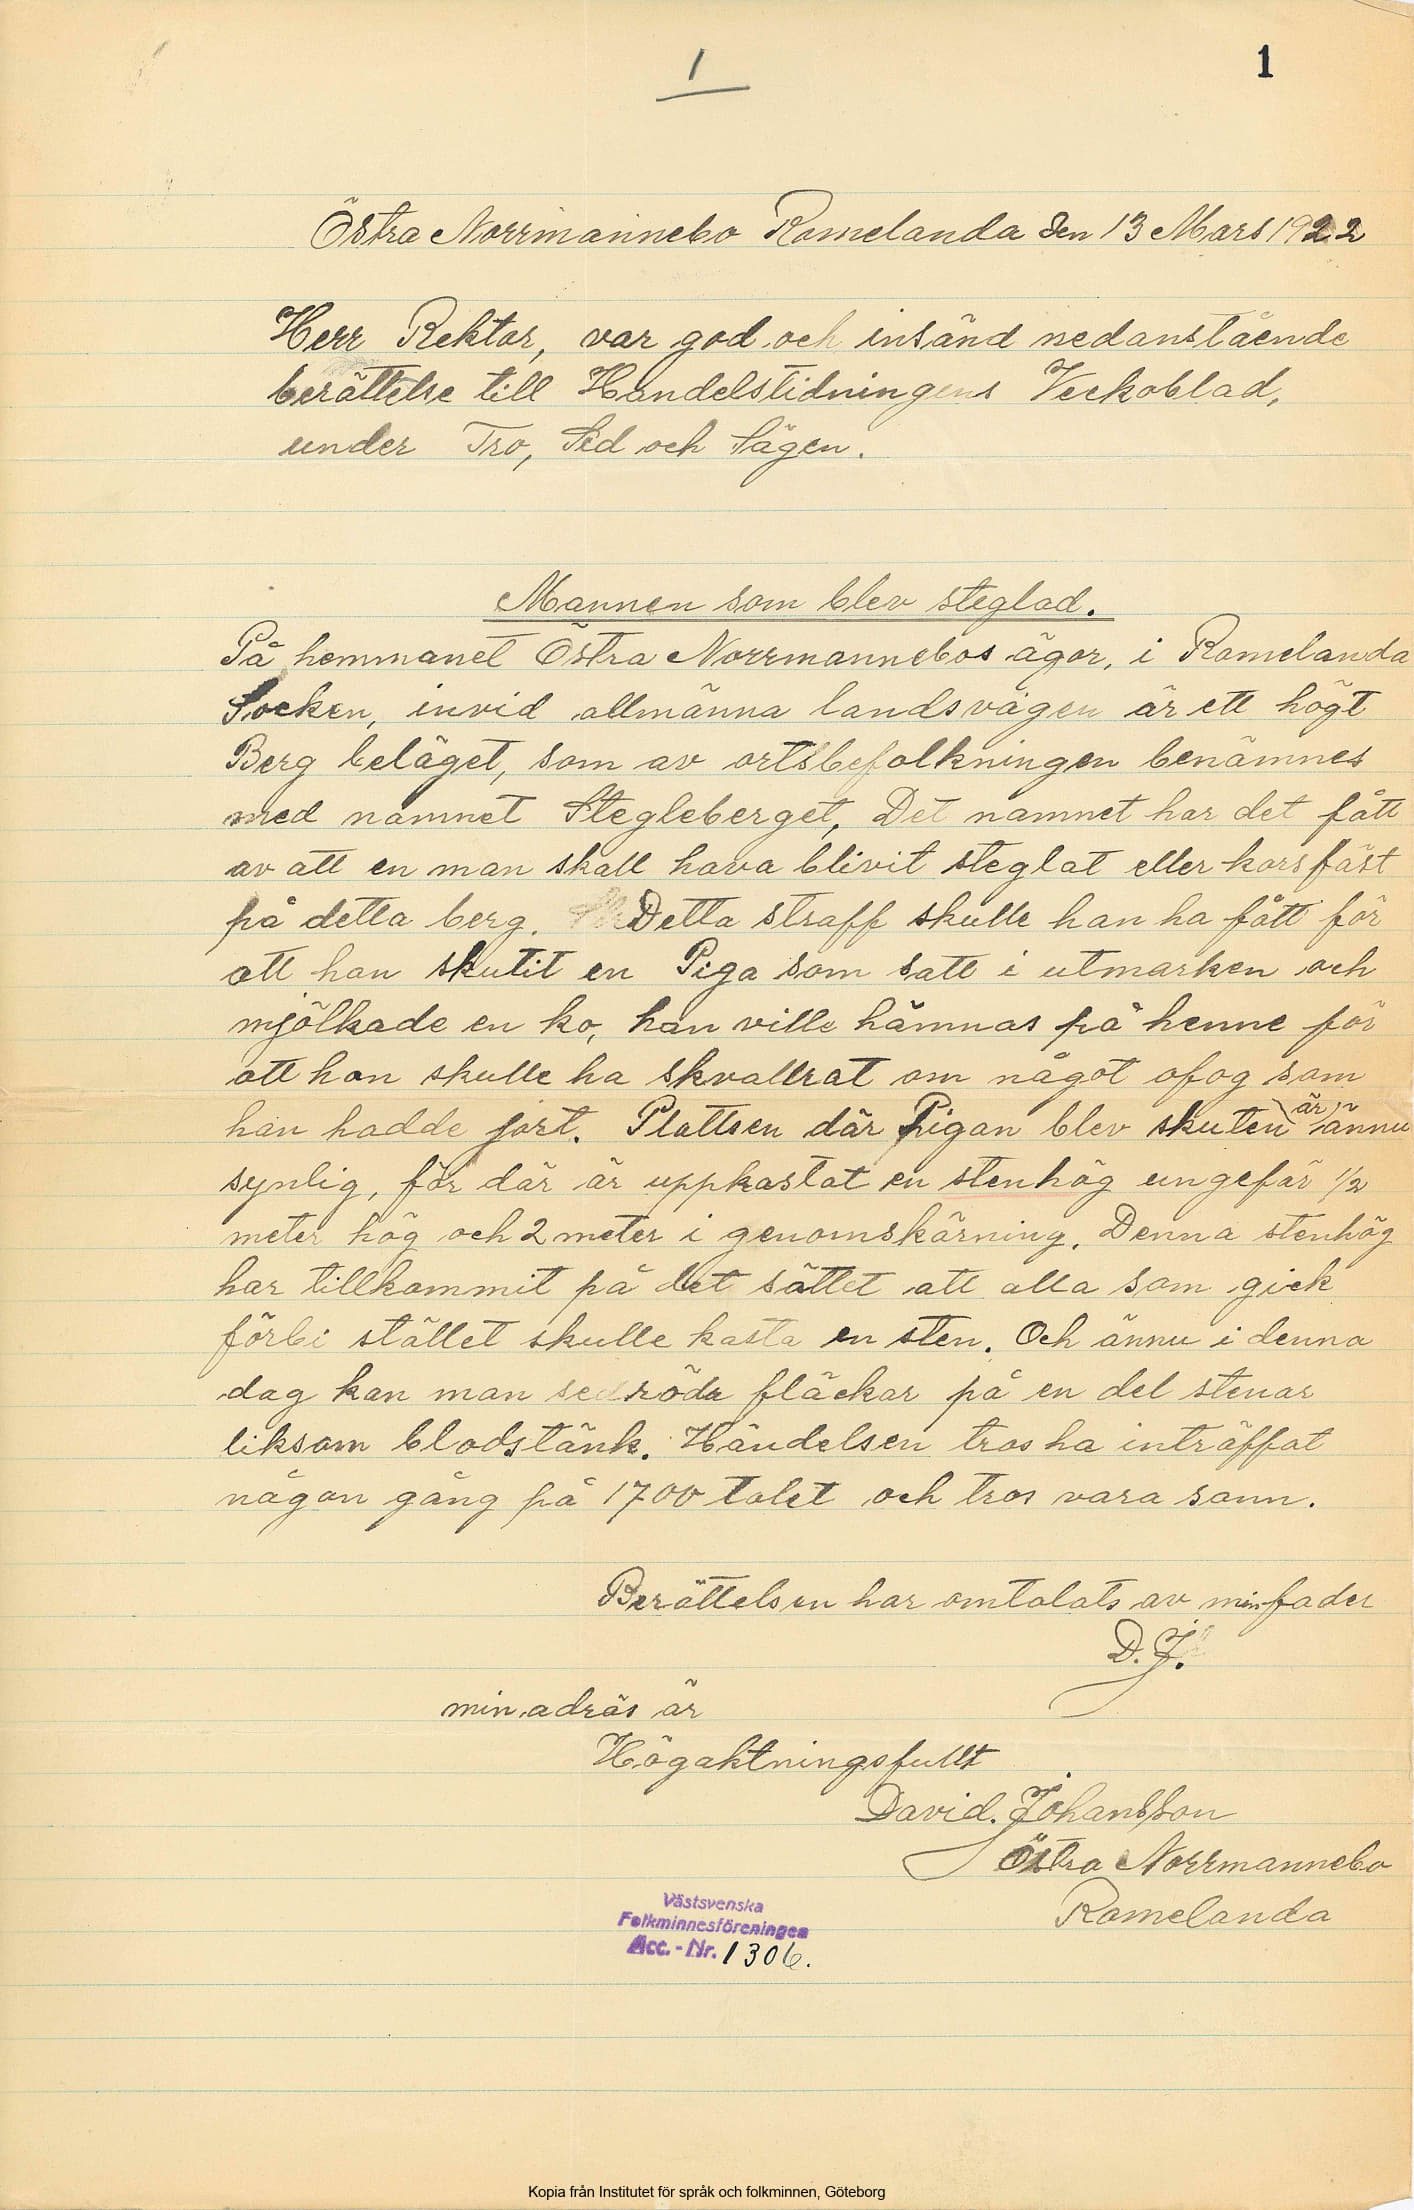 1
1
Östra Norrmannebo Romelanda den 13 Mars 1922
Herr Rektor, var god och insänd nedanstående
berättelse till Handelstidningens Veckoblad,
under Tro, Sed och Sägen.
Mannen som blev steglad.
På hemmanet Östra Norrmannebos ägor, i Romelanda
Socken, invid allmänna landsvägen är ett högt
Berg beläget, som av ortsbefolkningen benämnes
med namnet Stegleberget. Det namnet har det fått
av att en man skall hava blivit steglat eller korsfäst
på detta berg. Detta straff skulle han ha fått för
att han skutit en Piga som satt i utmarken och
mjölkade en ko, han ville hämnas på henne för
att hon skulle ha skvallrat om något ofog som
han hadde jort. Plattsen där Pigan blev skuten är ännu
synlig, för där är uppkastat en stenhög ungefär 1/2
meter hög och 2 meter i genomskärning. Denna stenhög
har tillkommit på det sättet att alla som gick
förbi stället skulle kasta en sten. Och ännu i denna
dag kan man se röda fläckar på en del stenar
liksom blodstänk. Händelsen tros ha inträffat
någon gång på 1700 talet och tros vara sann.
Berättelsen har omtalats av min fader
D. J.
min adräs är
Högaktningsfullt
David. Johansson
Östra Norrmannebo
Romelanda
Västsvenska
Folkminnesföreningen
Acc.-Nr. 1306.
Kopia från Institutet för språk och folkminnen, Göteborg